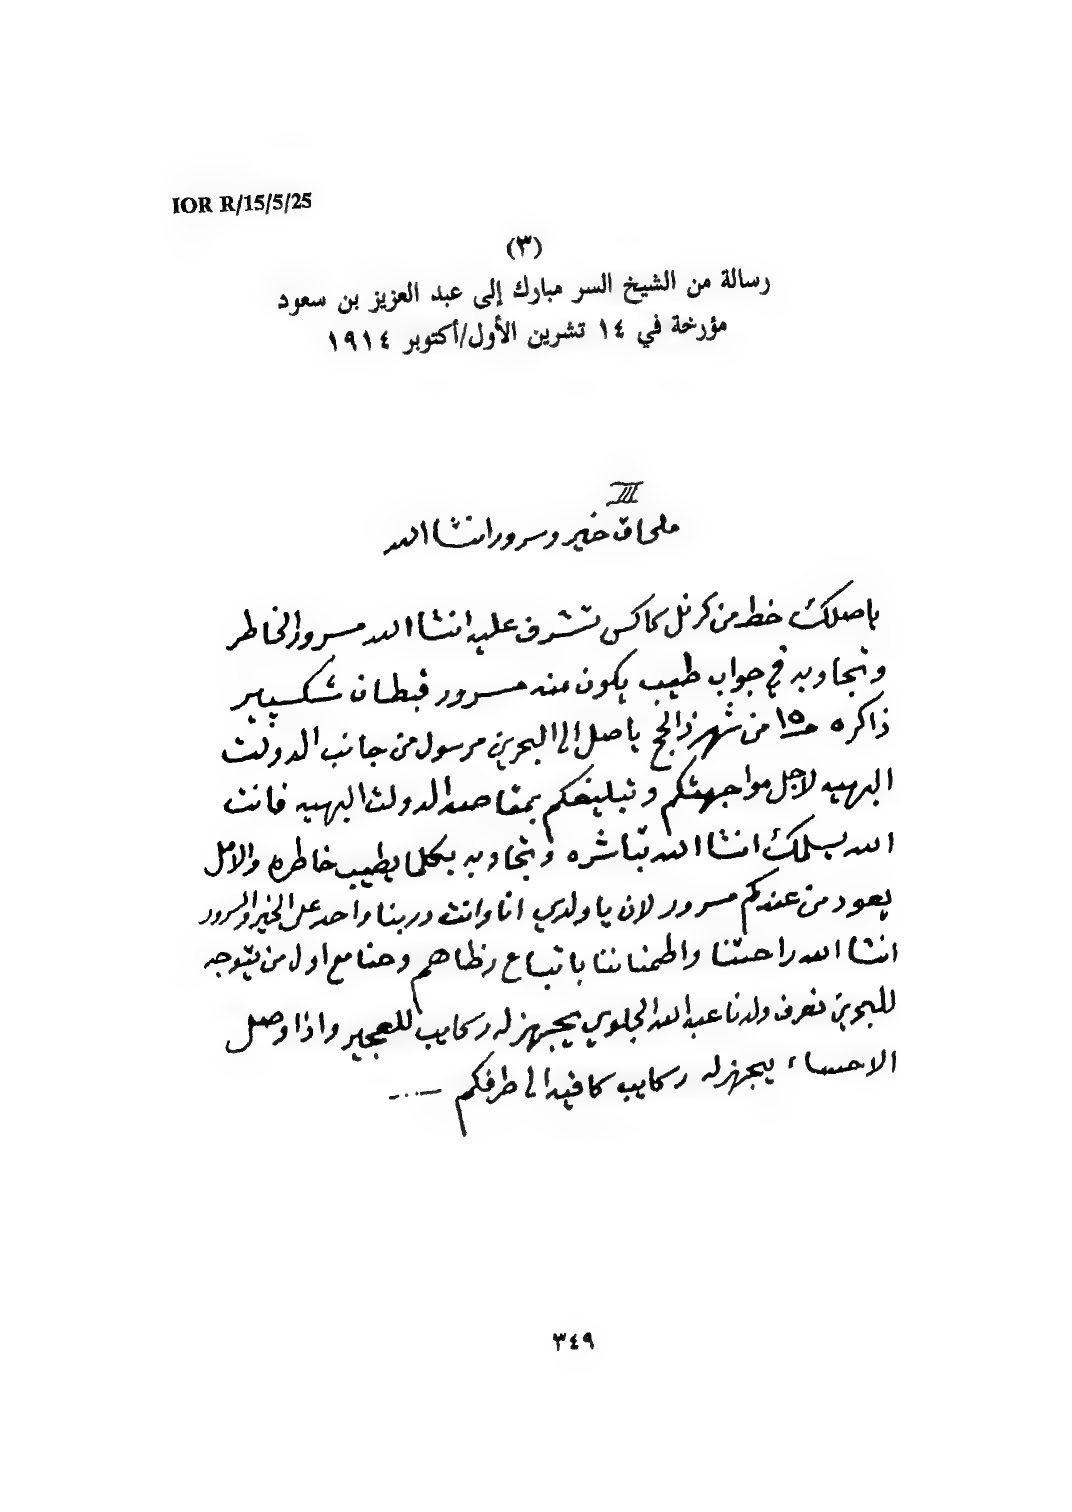 IOR R/15/5/25
(٣)
رسالة من الشيخ السر مبارك إلى عبد العزيز بن سعود
مؤرخة في ١٤ تشرين الأول/أكتوبر ١٩١٤
III
ملحاق خير وسرور انشا الله
ياصلك خط من كرنل كاكس تشرف عليه انشا الله مسرور الخاطر
وتجاوبه في جواب طيب يكون منه مسرور قبطان شكسپير
ذاكره ١٥ من شهر ذالحج ياصل الا البحرين مرسول من جانب الدولت
البهيه لاجل مواجهتكم وتبليغكم بمقاصد الدولت البهيه فانت
الله يسلمك انشا الله تباشره وتجاوبه بكلما يطيب خاطره والامل
يعود من عندكم مسرور لان يا ولدي انا وانت دربنا واحد على الخير والسرور
انشا الله راحتنا واطمناننا باتباع رظاهم وحنا مع اول من يتوجه
للبحرين نعرف ولدنا عبدالله الجلوي يجهز له ركايب للعجير واذا وصل
الاحساء يجهز له ركايب كافيه الى طرفكم
٣٤٩